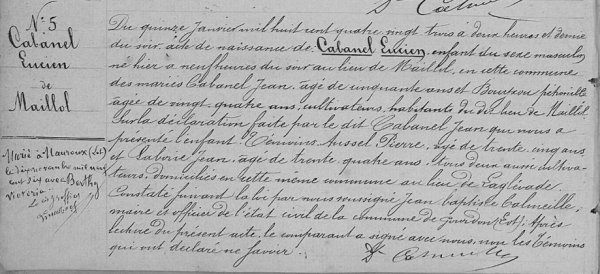 N° 5
Cabanel
Lucien
de
Maillol
Marié à Mauroux (Lot)
le dix
neuf cent
dix avec Berthy
Victoria
Le greffier
Du quinze Janvier mil huit cent quatre vingt trois à deux heures et demie
du soir, acte de naissance de Cabanel Lucien, enfant du sexe masculin
né hier à neuf heures du soir au lieu de Maillol, en cette commune
des mariés Cabanel Jean, âgé de cinquante ans et
âgée de vingt quatre ans, cultivateurs, habitants du dit lieu de Maillol
Sur la déclaration faite par le dit Cabanel Jean qui nous a
présenté l'enfant. Témoins Pierre, âgé de trente cinq ans
et Laborie Jean, âgé de trente quatre ans, tous deux aussi cultiva-
teurs, domiciliés en cette même commune au lieu de
Constaté suivant la loi par nous soussigné jean baptiste Calmeille,
maire et officier de l'état civil de la commune de Gourdon (Lot). Après
lecture du présent acte, le comparant a signé avec nous, non les témoins
qui ont déclaré ne savoir.